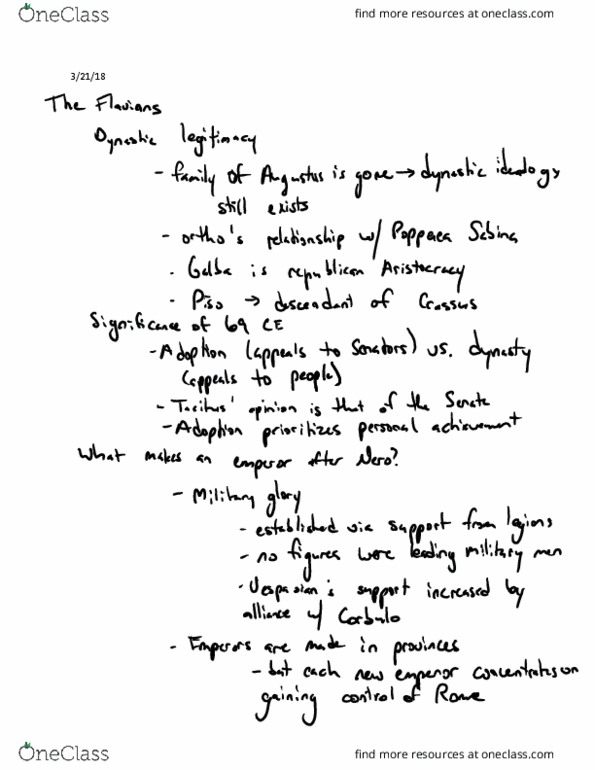 OneClass
find more resources at oneclass.com
3/21/18
The Flavians
Dynastic legitimacy
- family of Augustus is gone → dynastic ideology
still exists
- ortho's relationship w/ Poppaea Sabina
- Galba is republican Aristocracy
- Piso → descendant of Crassus
Significance of 69 CE
- Adoption (appeals to Senators) vs. dynasty
(appeals to people)
- Tacitus' opinion is that of the Senate
- Adoption prioritizes personal achievement
What makes an emperor after Nero?
- Military glory
- established via support from legions
- no figures were leading military men
- Vespasian's support increased by
alliance w/ Corbulo
- Emperors are made in provinces
- but each new emperor concentrates on
gaining control of Rome
OneClass
find more resources at oneclass.com